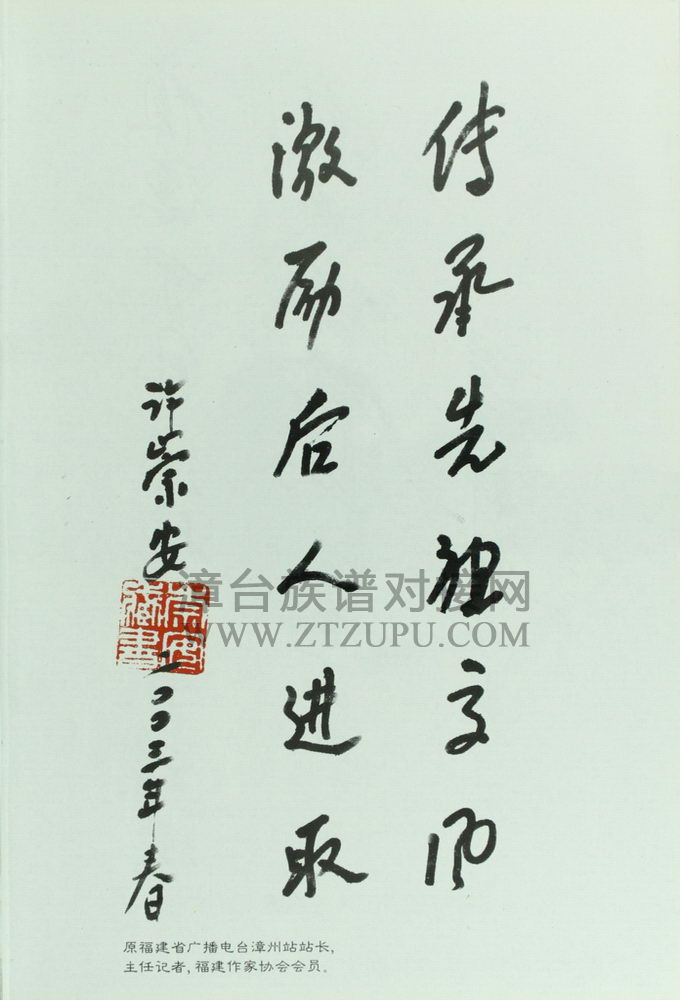 传承先祖文风
激励后人进取
许崇安 二〇〇三年春
漳台族谱对接网
WWW.ZTZUPU.COM
原福建省广播电台漳州站站长，
主任记者，福建作家协会会员。